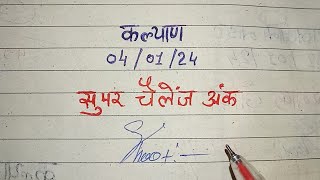 कल्याण
04/01/24
सुपर चैलेंज अंक